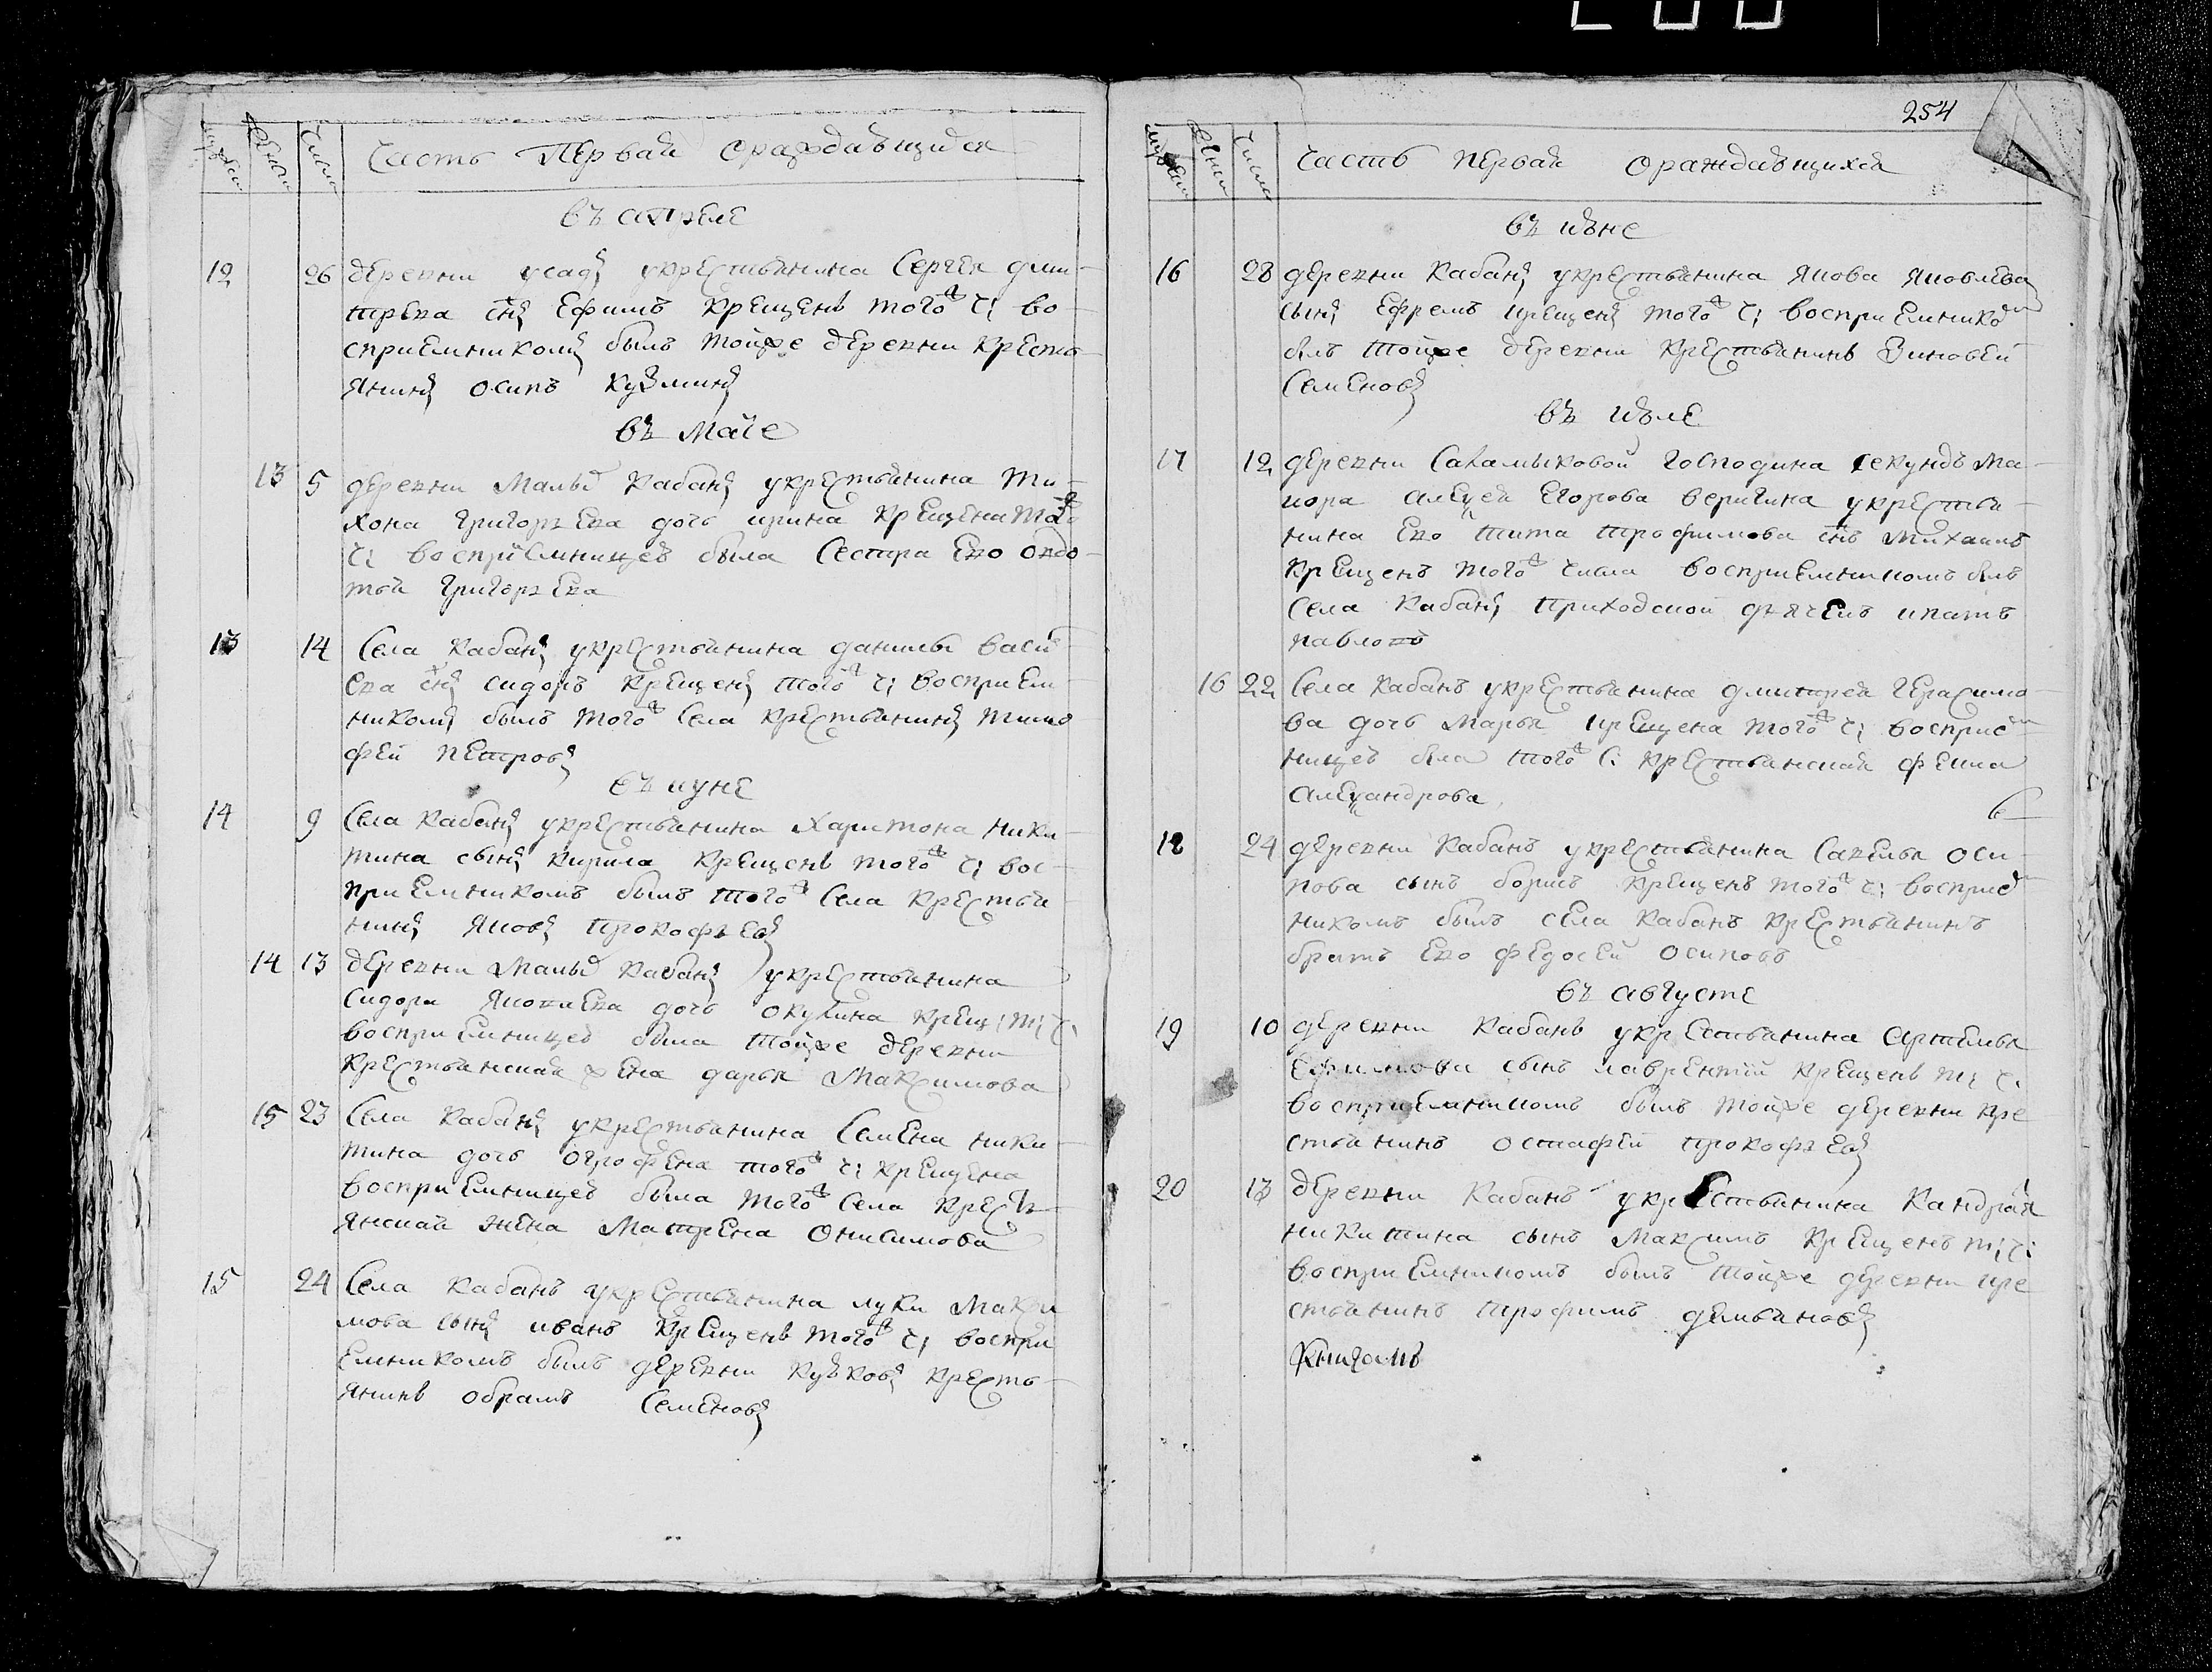 Часть Первая ораждаѣщихся
въ апреле
12 26 деревни усадъ укрестьянина Сергея дми-
треева снъ Ефимъ крещенъ тогож ч: во-
сприемникомъ былъ тойже деревни кресть-
янинъ осипъ кузминъ
въ маiе
13 5 деревни малыхъ кабанъ укрестьянина Ти-
хона григорьева дочь ирина крещена тогож
ч: восприемницеѣ была сестра ево овдо-
тья григорьева
13 14 Села кабанъ укрестьянина данилы васи-
ева снъ сидоръ крещенъ тогож ч: восприем-
никомъ былъ тогож села крестьянинъ тимо
фей петровъ
въ иуне
14 9 Села кабанъ укрестьянина харитона ники-
тина сынъ кирила крещенъ тогож ч: вос-
приемникомъ былъ тогож села крестья
нинъ яковъ прокофьевъ
14 13 деревни малыхъ кабанъ укрестьянина
сидора яковлева дочь окулина крещ: т: ч:
восприемницеѣ была тойже деревни
крестьянская жена дарья максимова
15 23 Села кабанъ укрестьянина семена ники-
тина дочь огрофена тогож ч: крещена
восприемницеѣ была тогож села кресть
янская жена матрена онисимова
15 24 Села кабанъ укрестьянина луки макси
мова сынъ иванъ крещенъ тогож ч: воспри
емникомъ былъ деревни кужковъ кресть-
янинъ обрамъ семеновъ
254
часть первая ораждаѣщихся
въ июне
16 28 деревни кабанъ укрестьянина якова яковлева
сынъ ефремъ крещенъ тогож ч: восприемником
былъ тойже деревни крестьянинъ зиновей
семеновъ
въ июле
17 12 деревни Саламыковой господина секундъ ма-
иора алексея егорова веригина укрестья-
нина ево тита трофимова снъ михаилъ
крещенъ тогож числа восприемникомъ былъ
села кабанъ приходской дьячекъ ипатъ
павловъ
16 22 Села кабанъ укрестьянина дмитрея герасимо-
ва дочь марья крещена тогож ч: восприем
ницеѣ была тогож с: крестьянская фекла
александрова
18 24 деревни кабанъ укрестьянина савелья оси
пова сынъ борисъ крещенъ тогож ч: восприем
никомъ былъ села кабанъ крестьянинъ
братъ ево федосей осиповъ
въ августе
19 10 деревни кабанъ укрестьянина артемья
ефимова сынъ лаврентий крещенъ т: ч:
восприемникомъ былъ тойже деревни кре
стьянинъ остафей прокофьевъ
20 13 деревни кабанъ укрестьянина кандрая
никитина сынъ максимъ крещенъ т: ч:
восприемникомъ былъ тойже деревни кре
стьянинъ трофимъ демьяновъ
книгамъ